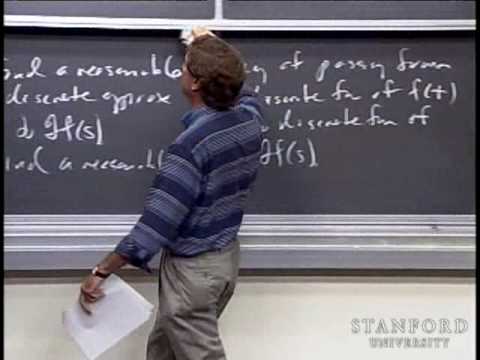 find a reasonable way of passing from
discrete approx discrete fm of f(t)
d) Ff(s) a discrete fm of
find a reasonabl Ff(s)
STANFORD
UNIVERSITY